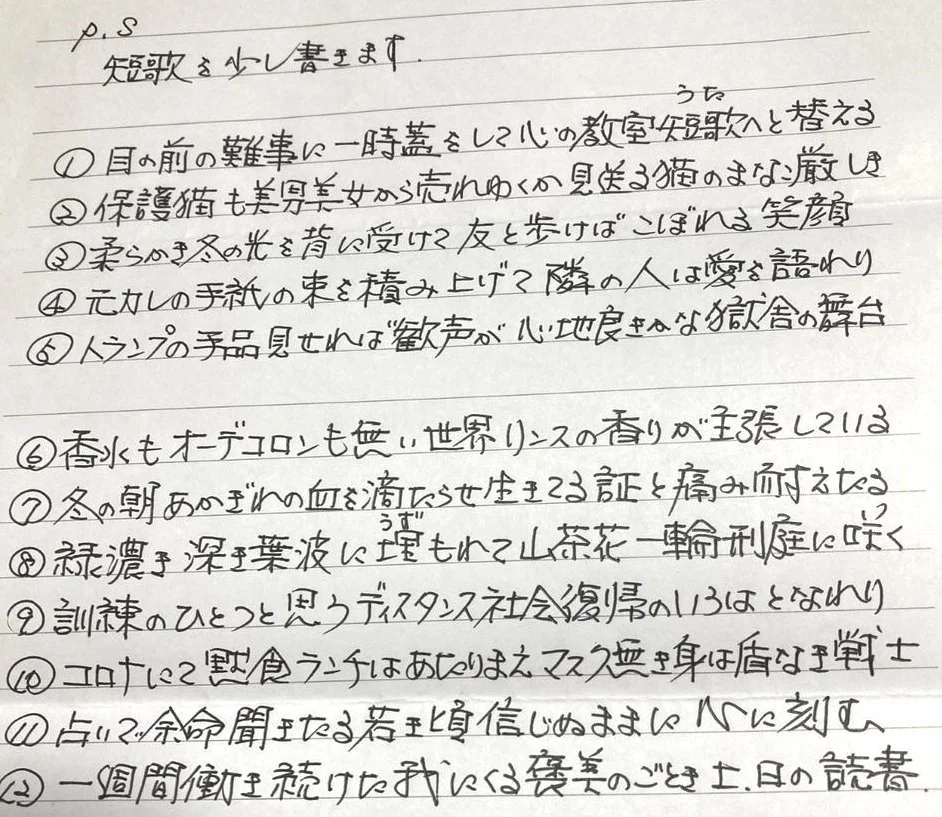 P.S
短歌を少し書きます.
うた
①目の前の難事に一時蓋をして心の教室短歌へと替える
②保護猫も美男美女から売れゆくか見送る猫のまなこ厳しき
③柔らかき冬の光を背に受けて友と歩けばこぼれる笑顔
④元カレの手紙の束を積み上げて隣の人は愛を語れり
⑤トランプの手品見せれば歓声が心地良きかな獄舎の舞台
⑥香水もオーデコロンも無い世界リンスの香りが主張している
⑦冬の朝あかぎれの血を滴たらせ生きてる証と痛み耐えたる
うず
⑧緑濃き深き葉波に埋もれて山茶花一輪刑庭に咲く
⑨訓練のひとつと思うディスタンス社会復帰のいろはとなれり
⑩コロナにて黙食ランチはあたりまえマスク無き身は盾なき戦士
⑪占いで余命聞きたる若き頃信じぬままに心に刻む
⑫一週間働き続けた我にくる褒美のごとき土.日の読書.